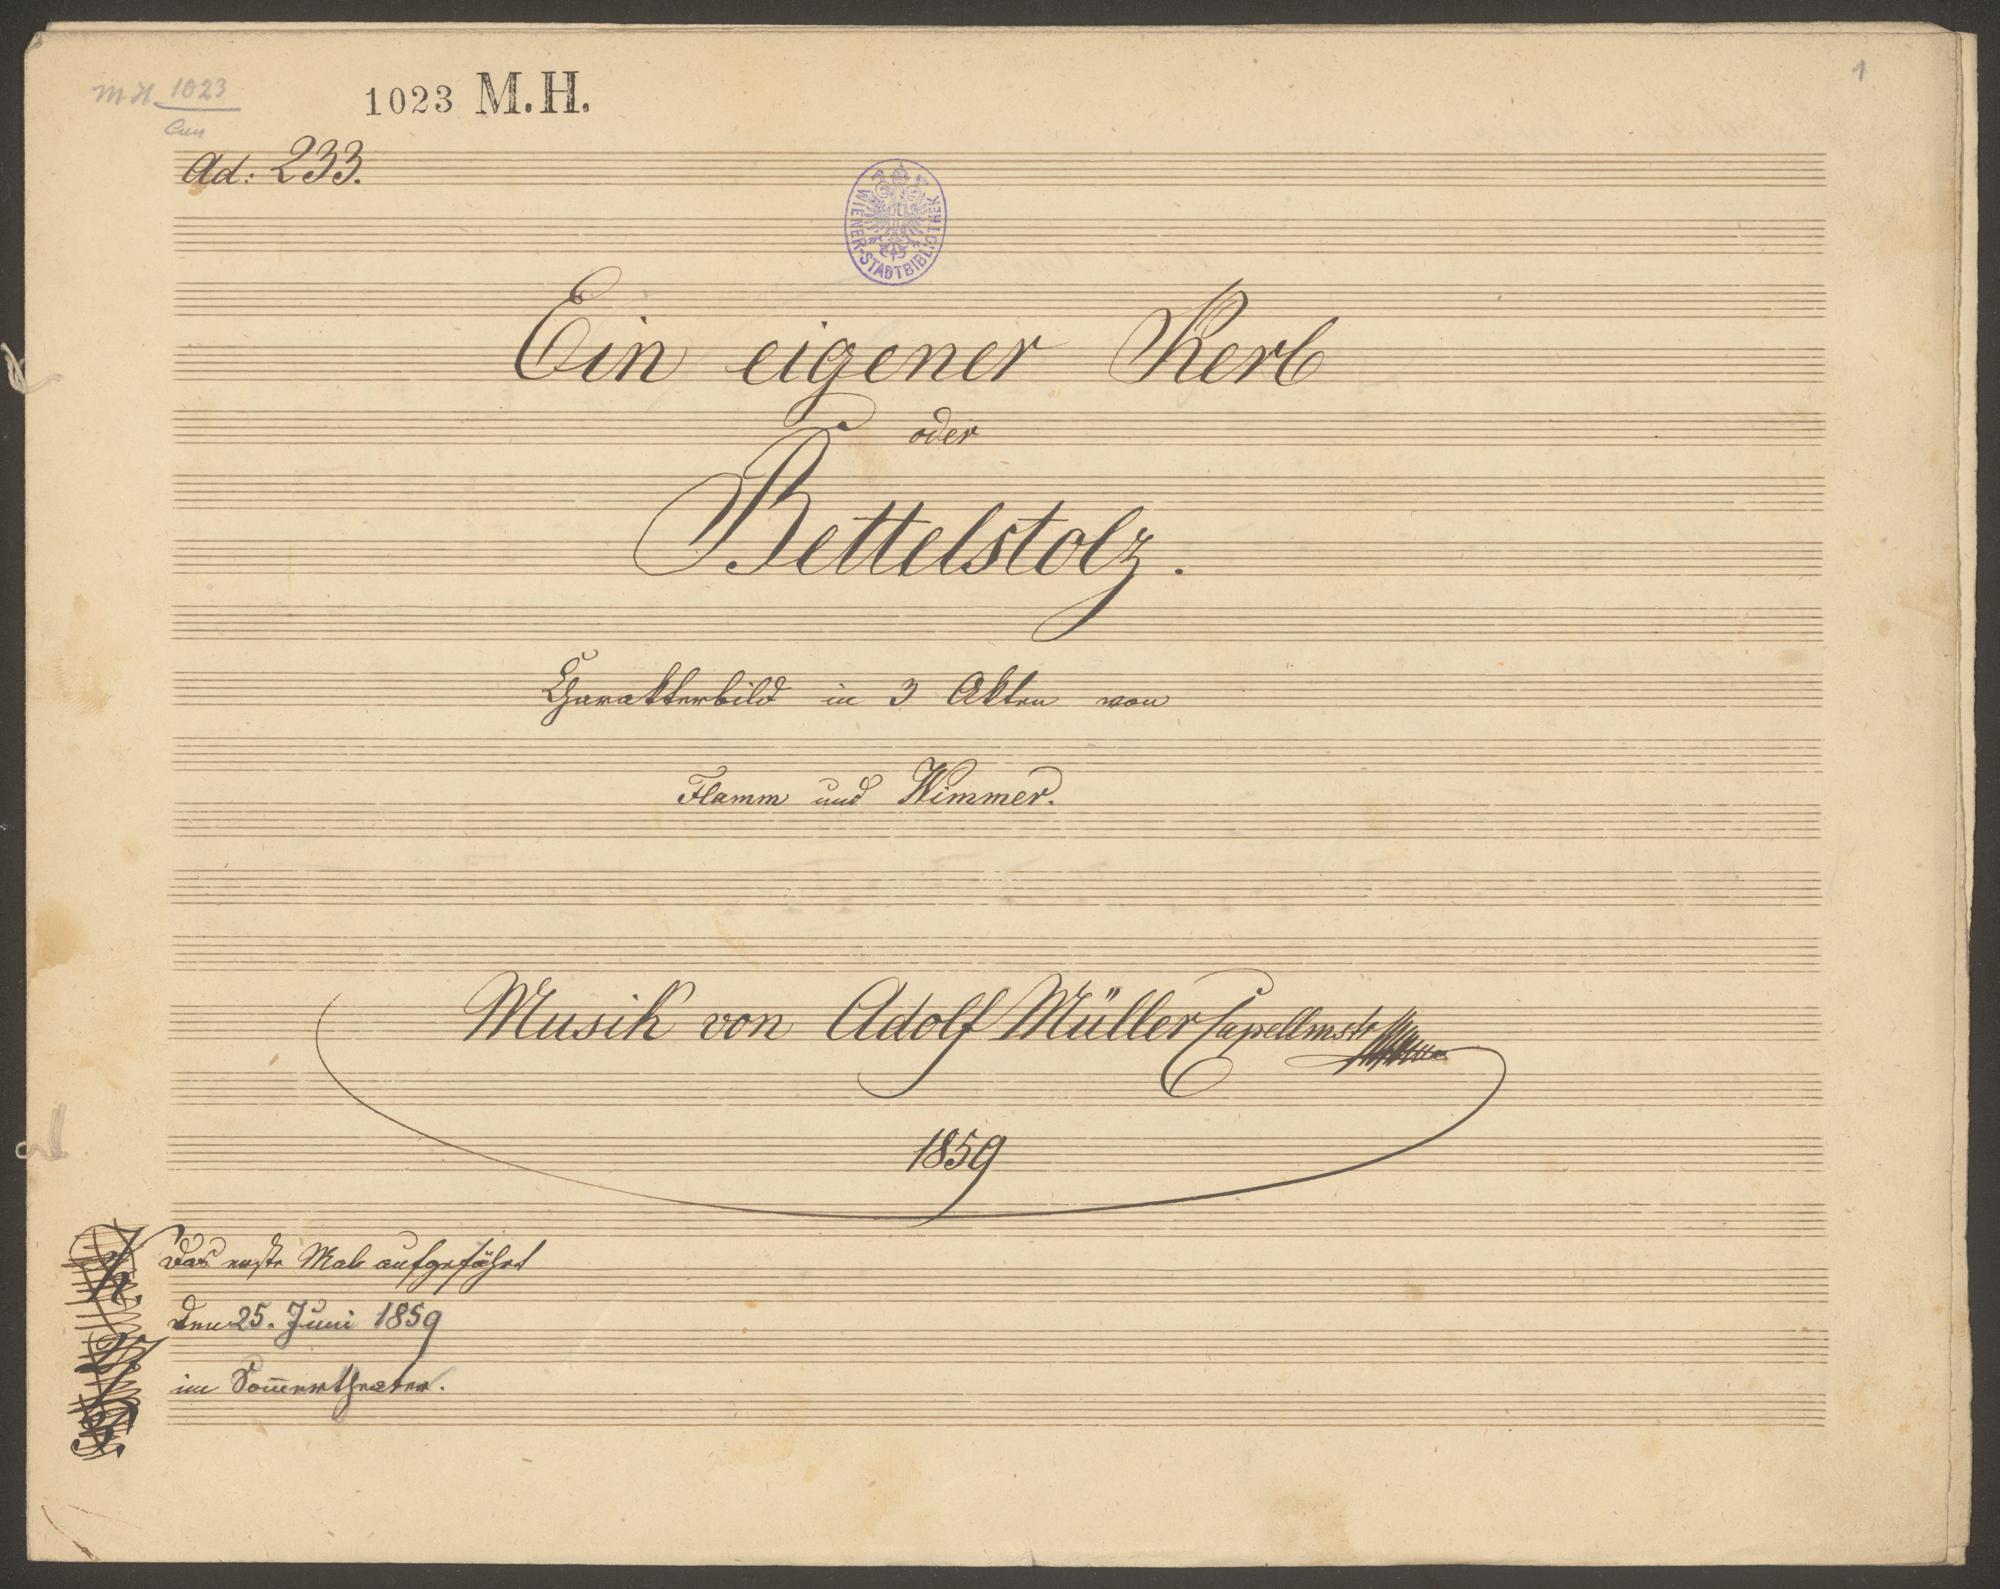 M H 1023
1023 M.H.
1
Ad: 233.
WIENER-STADTBIBLIOTHEK
Ein eigener Kerl
oder
Bettelstolz.
Charakterbild in 3 Akten von
Flamm und Wimmer.
Musik von Adolf Müller Capellmstr
1859
Das erste Mal aufgeführt
den 25. Juni 1859
im Som̅ertheater.